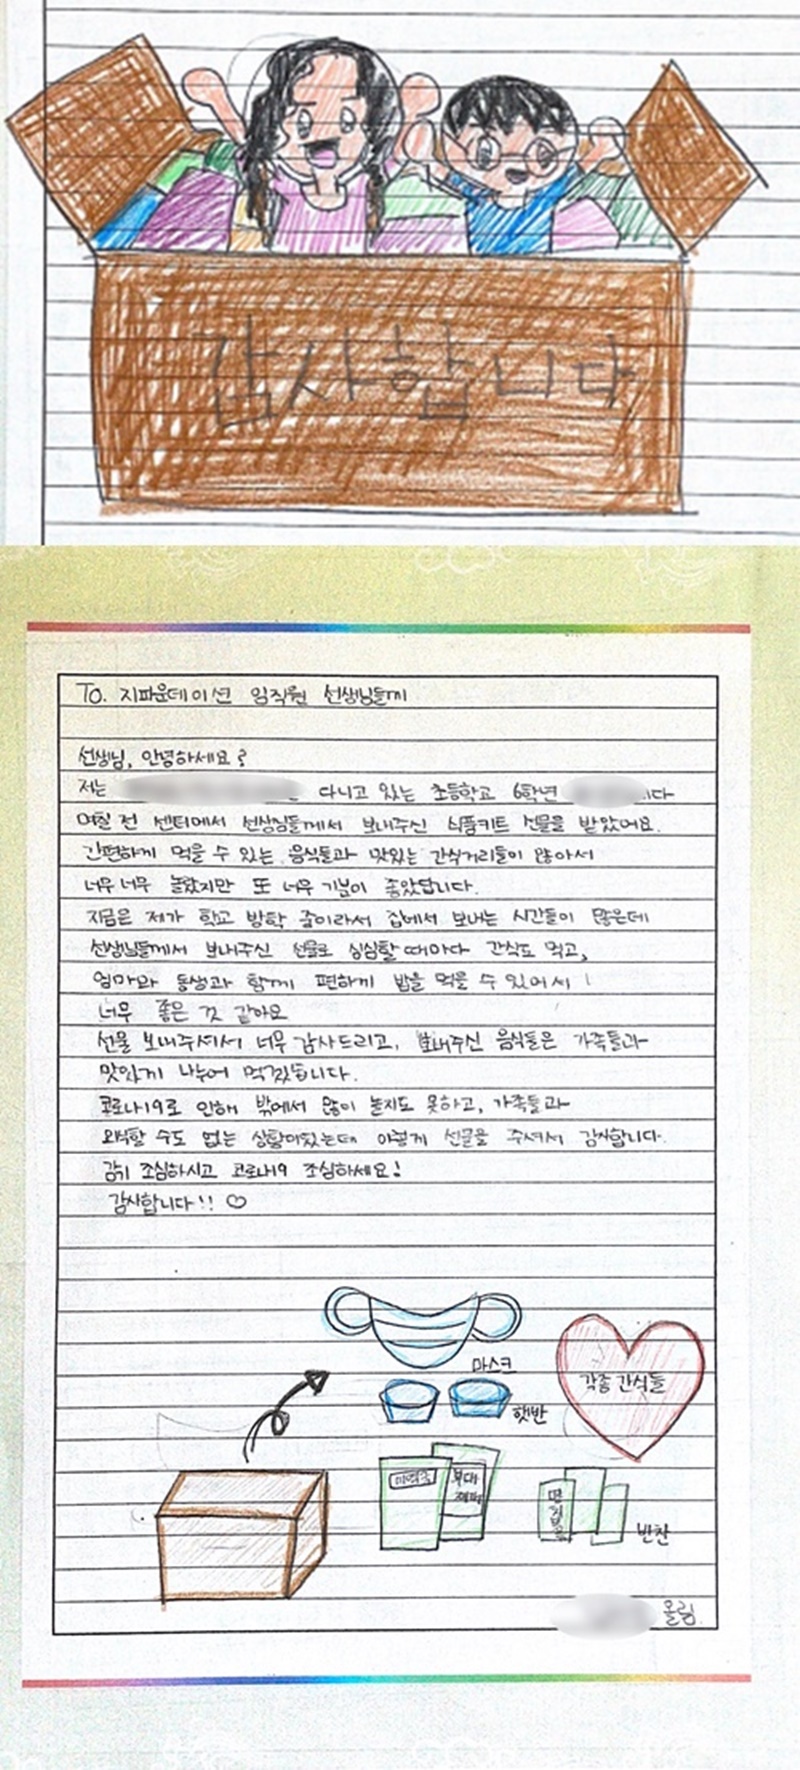 감사합니다
To. 지파운데이션 임직원 선생님들께
선생님, 안녕하세요?
저는 다니고 있는 초등학교 6학년 니다
며칠 전 센터에서 선생님들께서 보내주신 식품키트 선물을 받았어요.
간편하게 먹을 수 있는 음식들과 맛있는 간식거리들이 많아서
너무 너무 놀랐지만 또 너무 기분이 좋았답니다.
지금은 제가 학교 방학 중이라서 집에서 보내는 시간들이 많은데
선생님들께서 보내주신 선물로 심심할 때마다 간식도 먹고,
엄마와 동생과 함께 편하게 밥을 먹을 수 있어서
너무 좋은 것 같아요
선물 보내주셔서 너무 감사드리고, 보내주신 음식들은 가족들과
맛있게 나누어 먹겠습니다.
코로나19로 인해 밖에서 많이 놀지도 못하고, 가족들과
외식할 수도 없는 상황이었는데 이렇게 선물을 주셔서 감사합니다.
감기 조심하시고 코로나19 조심하세요!
감사합니다!! ♡
마스크
각종 간식들
햇반
미역국
부대
찌개
반찬
올림.